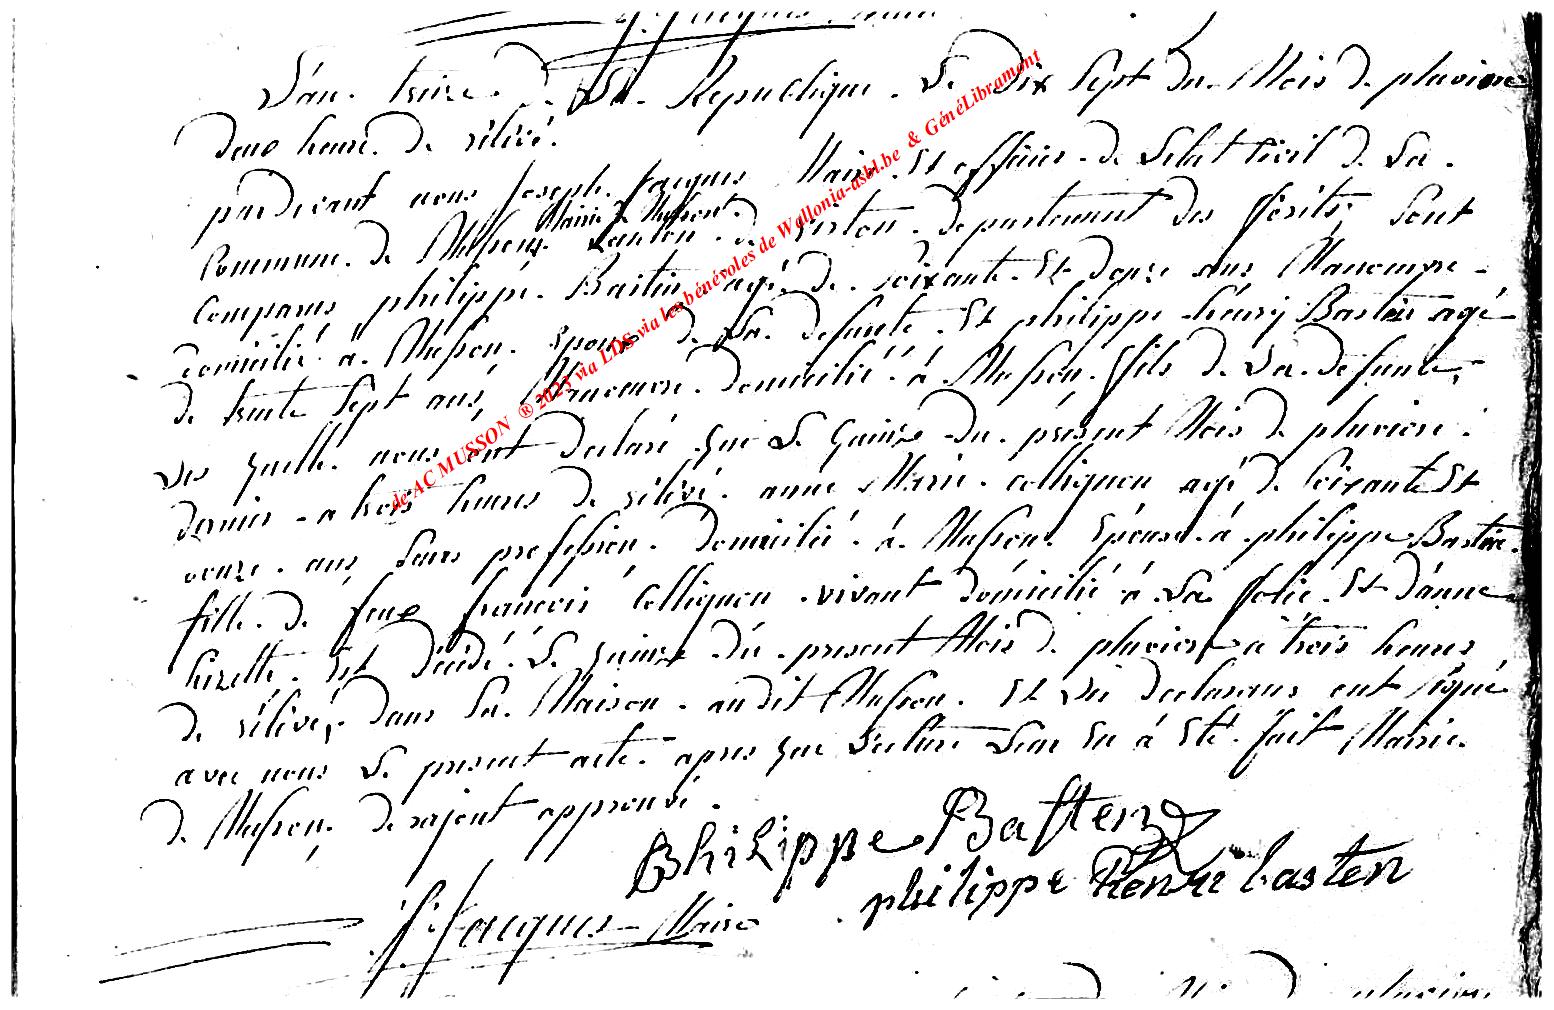 J. Jacques maire
L'an treize de La Republique Le dix Sept du Mois de pluviose
deux heure de rélévé.
pardevant nous Joseph Jacques Maire Et officier de Letat Civil de La
Mairie de Musson
Commune de Musson Canton de virton departement des forêts, Sont
Comparus philippe Bastin agé de Soixante Et douze ans Manouvre
domicilié à Musson Epoux de La defunte Et philippe henry Bastin agé
de trente Sept ans, Manouvre domicilié à Musson fils de La defunte,
Les quelle nous ont declaré que Le quinze du présent Mois de pluviose
dernier a trois heures de rélévé anne Marie Collignon agé de Soixante Et
onze ans Sans profession domicilié à Musson Epouse à philippe Bastin
fille de feux francois Collignon vivant domicilié à La folie Et d'anne
Lizette Est décédé Le quinze du present Mois de pluviose à trois heures
de rélévé, dans Sa Maison audit Musson Et Les declarans ont Signé
avec nous Le present acte apres que Lecture Leur En à Eté fait Mairie
de Musson de rajout approuvé.
Philippe Basten
philippe Henri basten
J. Jacques Maire
de AC MUSSON ® 2023 via LDS via les bénévoles de Wallonia-asbl.be & GénéLibramont